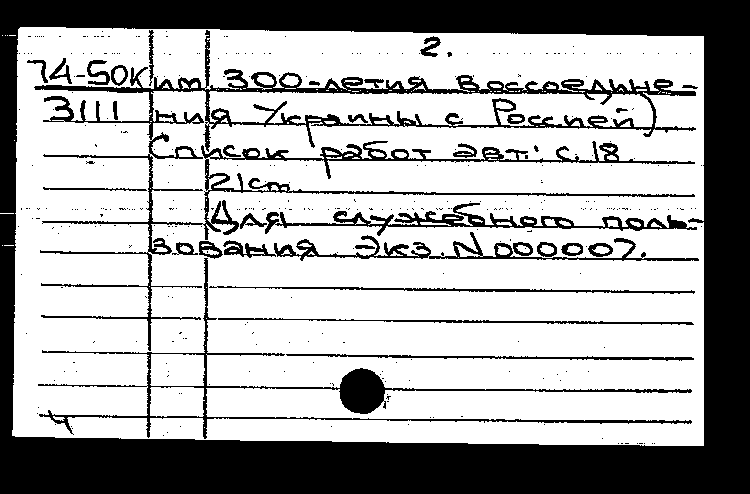 2.
74-50к им. 300-летия Воссоедине-
3111 ния Украины с Россией)
Список работ авт.: с. 18.
21 cm.
Для служебного поль-
зования. Экз. N 000007.